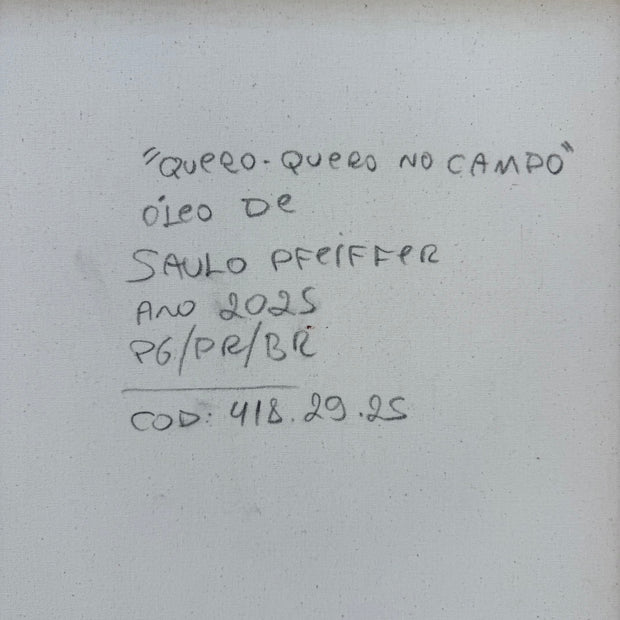 "QUERO-QUERO NO CAMPO"
ÓLEO DE
SAULO PFEIFFER
ANO 2025
PG/PR/BR
COD: 418.29.25